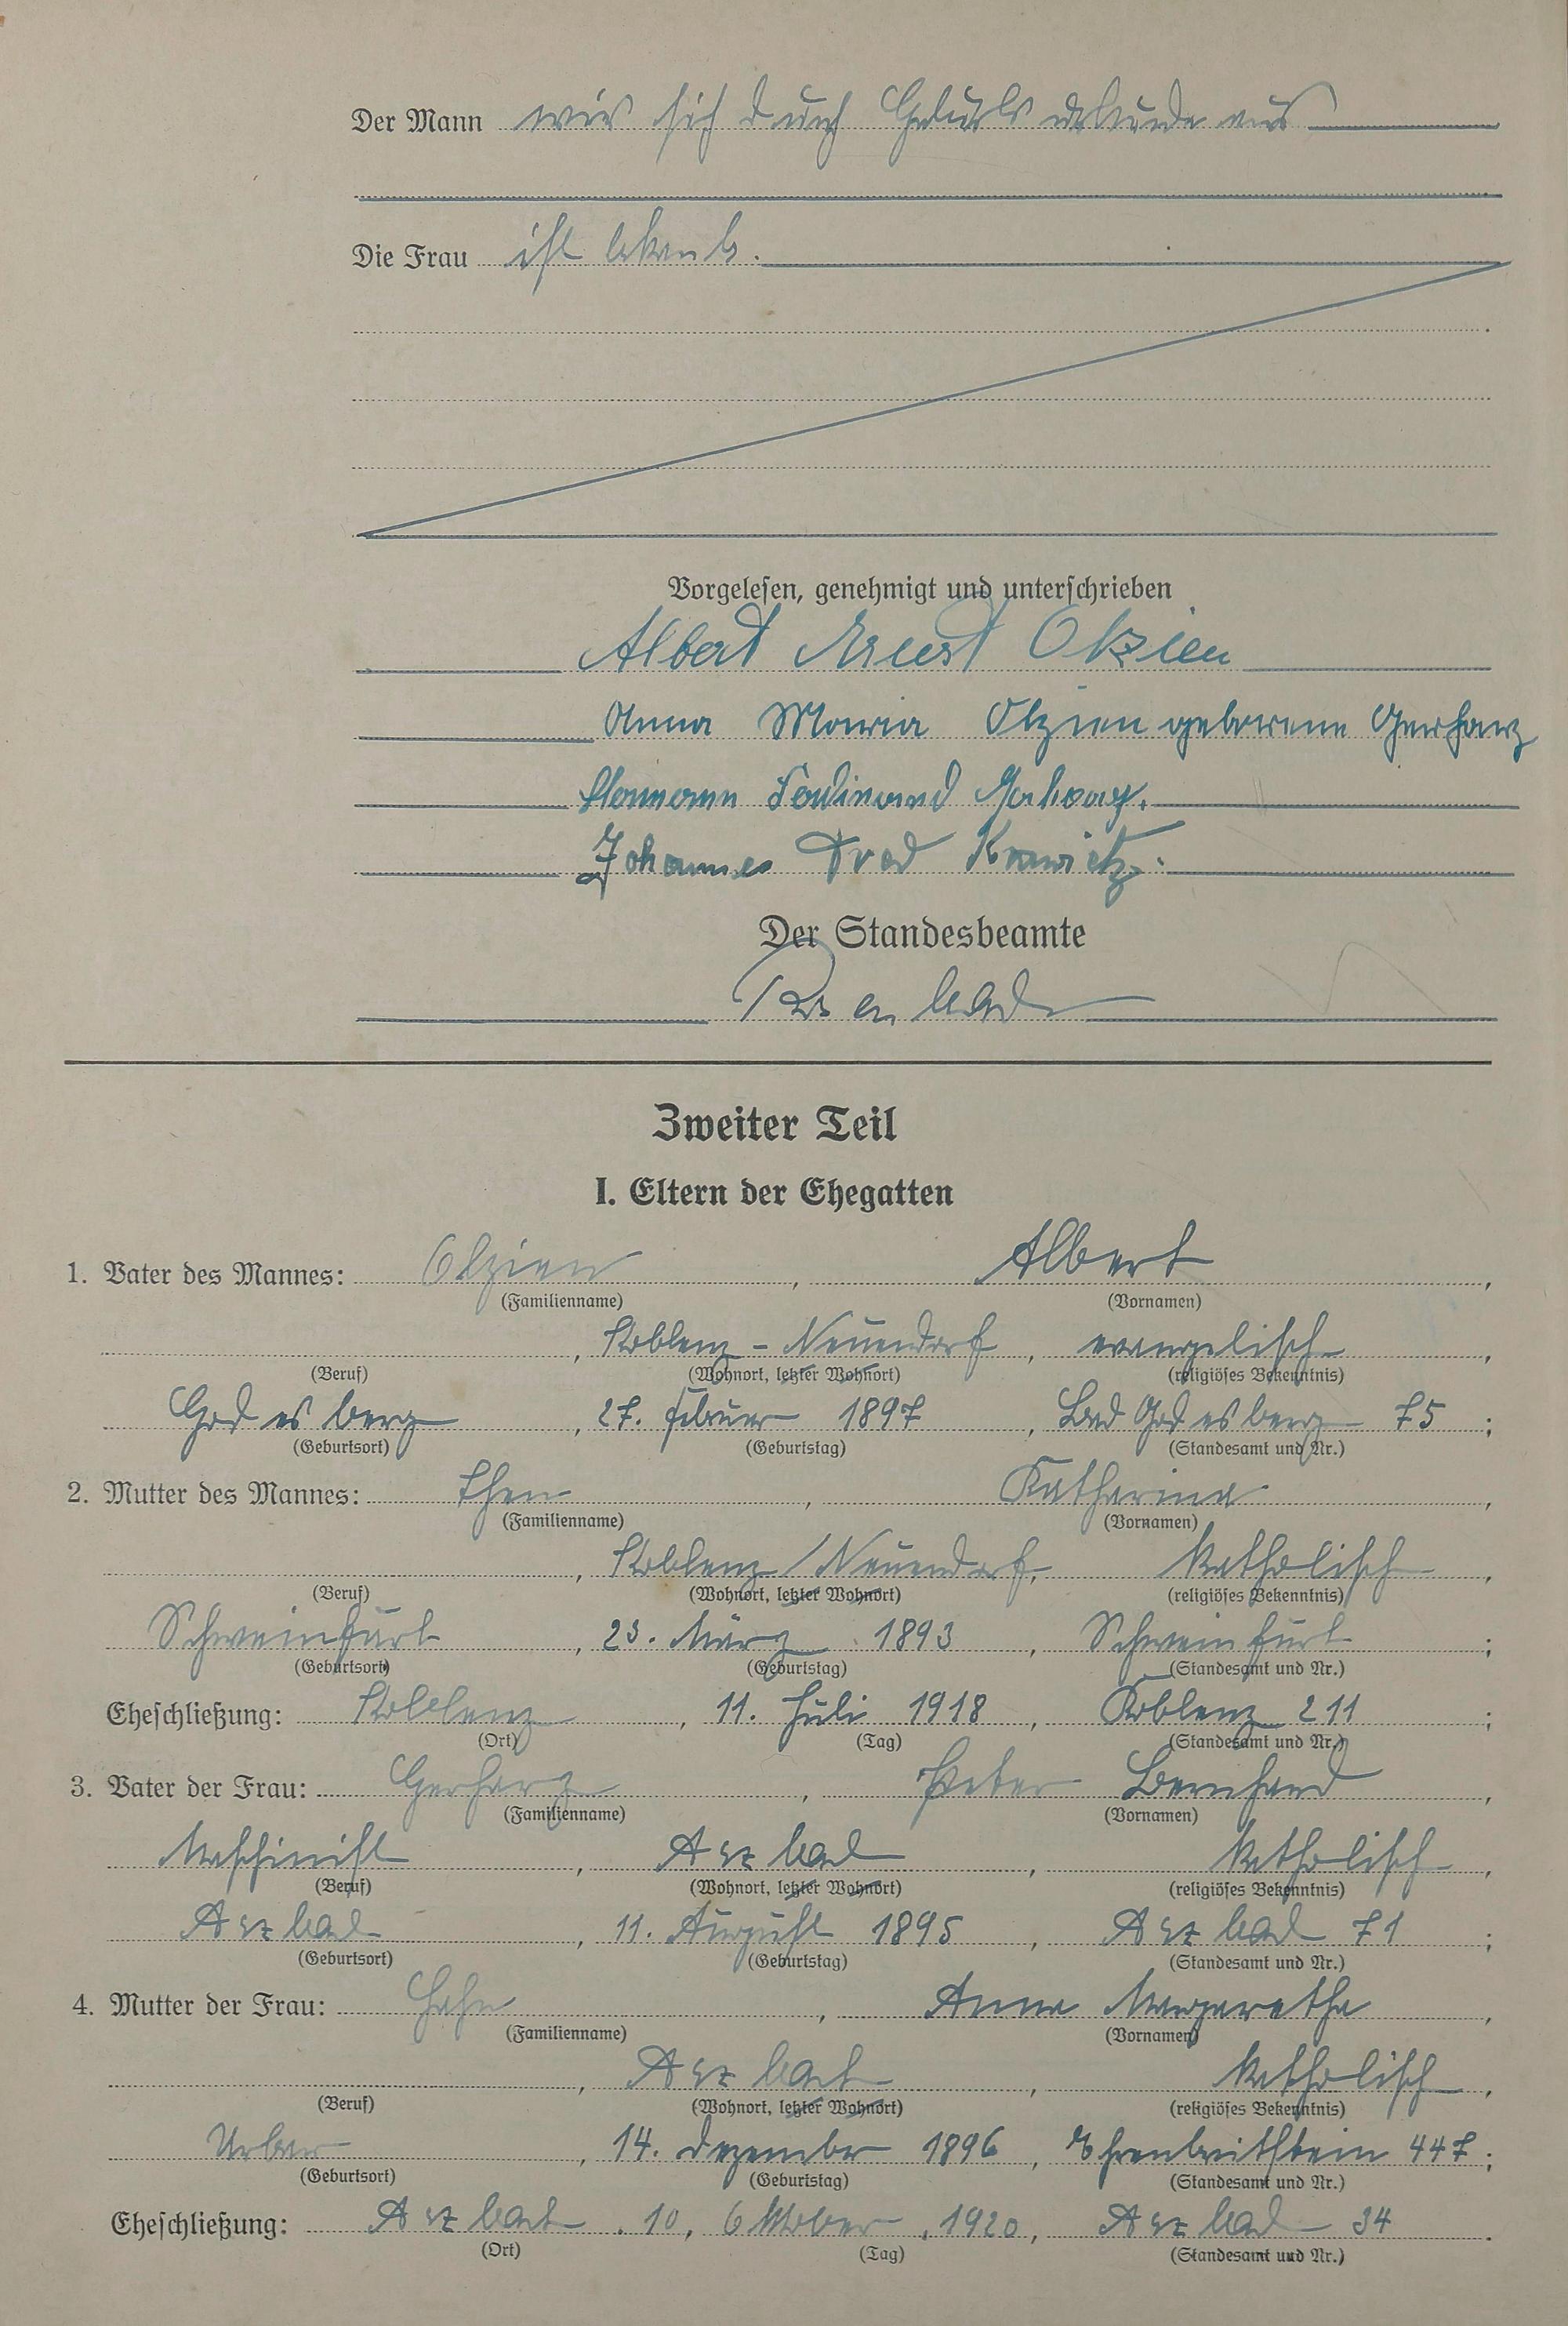 Der Mann wies sich durch Geburtsurkunde aus
Die Frau ist bekannt.
Vorgelesen, genehmigt und unterschrieben
Albert Ernst Olzien
Anna Maria Olzien geborene Gerharz
Hermann Ferdinand
Johannes Krawietz.
Der Standesbeamte
Zweiter Teil
I. Eltern der Ehegatten
1. Vater des Mannes: Olzien, Albert,
(Familienname) (Vornamen)
, Koblenz-Neuendorf, evangelisch,
(Beruf) (Wohnort, letzter Wohnort) (religiöses Bekenntnis)
Godesberg, 27. Februar 1897, Bad Godesberg 75;
(Geburtsort) (Geburtstag) (Standesamt und Nr.)
2. Mutter des Mannes: Then, Katharina,
(Familienname) (Vornamen)
, Koblenz/Neuendorf, katholisch,
(Beruf) (Wohnort, letzter Wohnort) (religiöses Bekenntnis)
Schweinfurt, 23. März 1893, Schweinfurt;
(Geburtsort) (Geburtstag) (Standesamt und Nr.)
Eheschließung: Koblenz, 11. Juli 1918, Koblenz 211;
(Ort) (Tag) (Standesamt und Nr.)
3. Vater der Frau: Gerharz, Peter Bernhard,
(Familienname) (Vornamen)
Maschinist, Arzbach, katholisch,
(Beruf) (Wohnort, letzter Wohnort) (religiöses Bekenntnis)
Arzbach, 11. August 1895, Arzbach 71;
(Geburtsort) (Geburtstag) (Standesamt und Nr.)
4. Mutter der Frau: Hahn, Anna Margaretha,
(Familienname) (Vornamen)
, Arzbach, katholisch,
(Beruf) (Wohnort, letzter Wohnort) (religiöses Bekenntnis)
Urbar, 14. Dezember 1896, Ehrenbreitstein 447;
(Geburtsort) (Geburtstag) (Standesamt und Nr.)
Eheschließung: Arzbach, 10. Oktober 1920, Arzbach 34.
(Ort) (Tag) (Standesamt und Nr.)